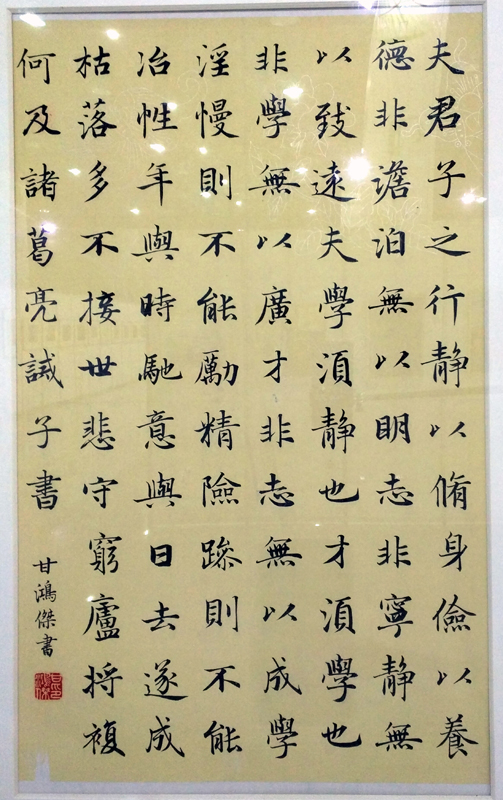 夫君子之行静以脩身儉以養
德非澹泊無以明志非寧静無
以致遠夫學須静也才須學也
非學無以廣才非志無以成學
淫慢則不能勵精險躁則不能
冶性年與時馳意與日去遂成
枯落多不接世悲守窮廬将複
何及諸葛亮誡子書
甘鴻傑書